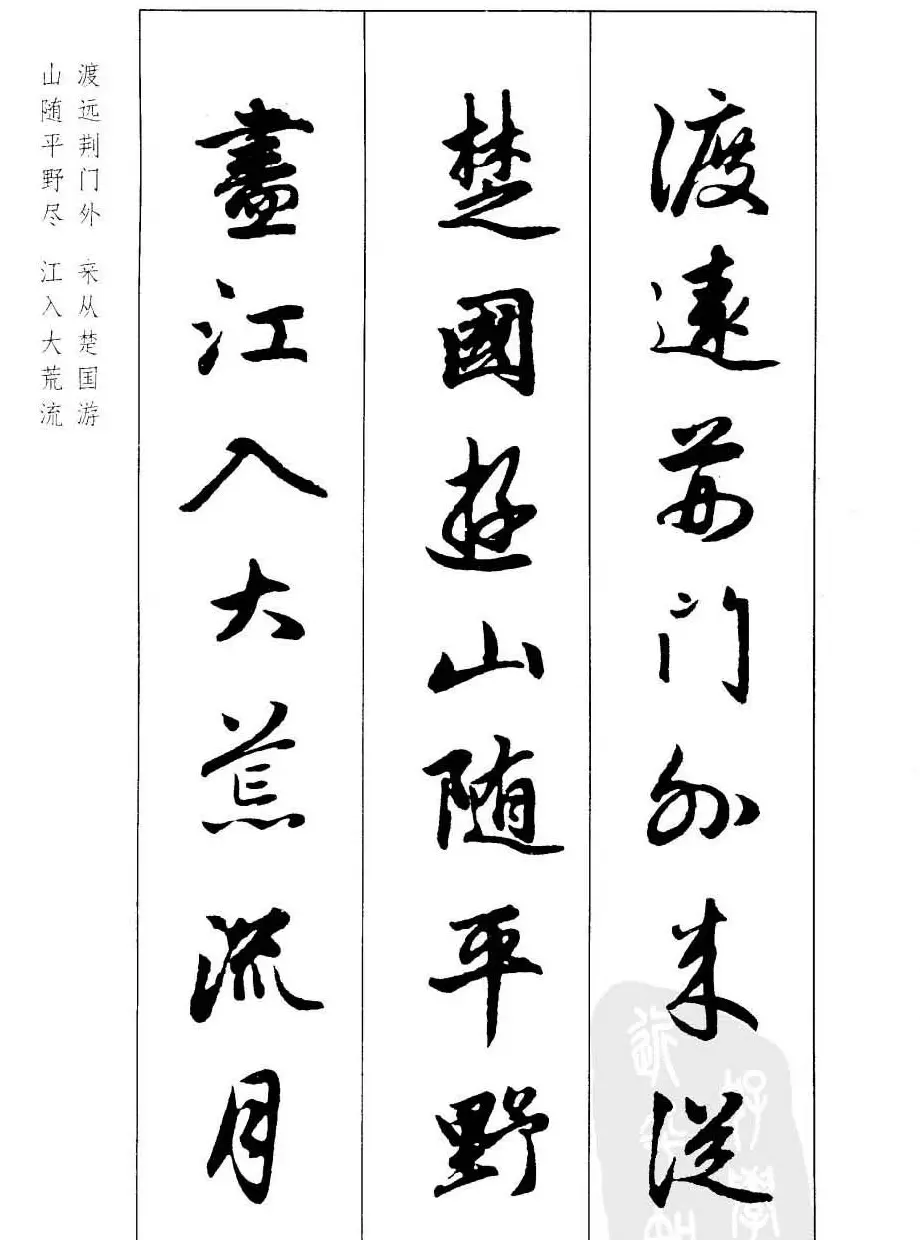 渡遠荆门外来從
楚國遊山随平野
盡江入大荒流月
渡远荆门外 来从楚国游
山随平野尽 江入大荒流